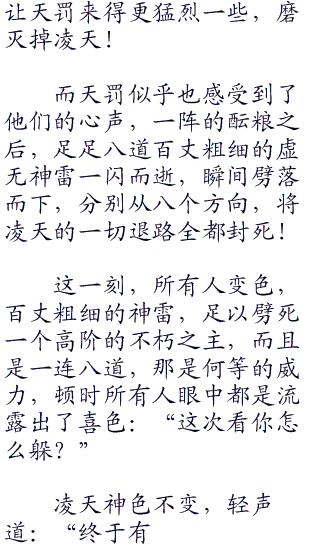 让天罚来得更猛烈一些，磨
灭掉凌天！
而天罚似乎也感受到了
他们的心声，一阵的酝粮之
后，足足八道百丈粗细的虚
无神雷一闪而逝，瞬间劈落
而下，分别从八个方向，将
凌天的一切退路全都封死！
这一刻，所有人变色，
百丈粗细的神雷，足以劈死
一个高阶的不朽之主，而且
是一连八道，那是何等的威
力，顿时所有人眼中都是流
露出了喜色：“这次看你怎
么躲？”
凌天神色不变，轻声
道：“终于有